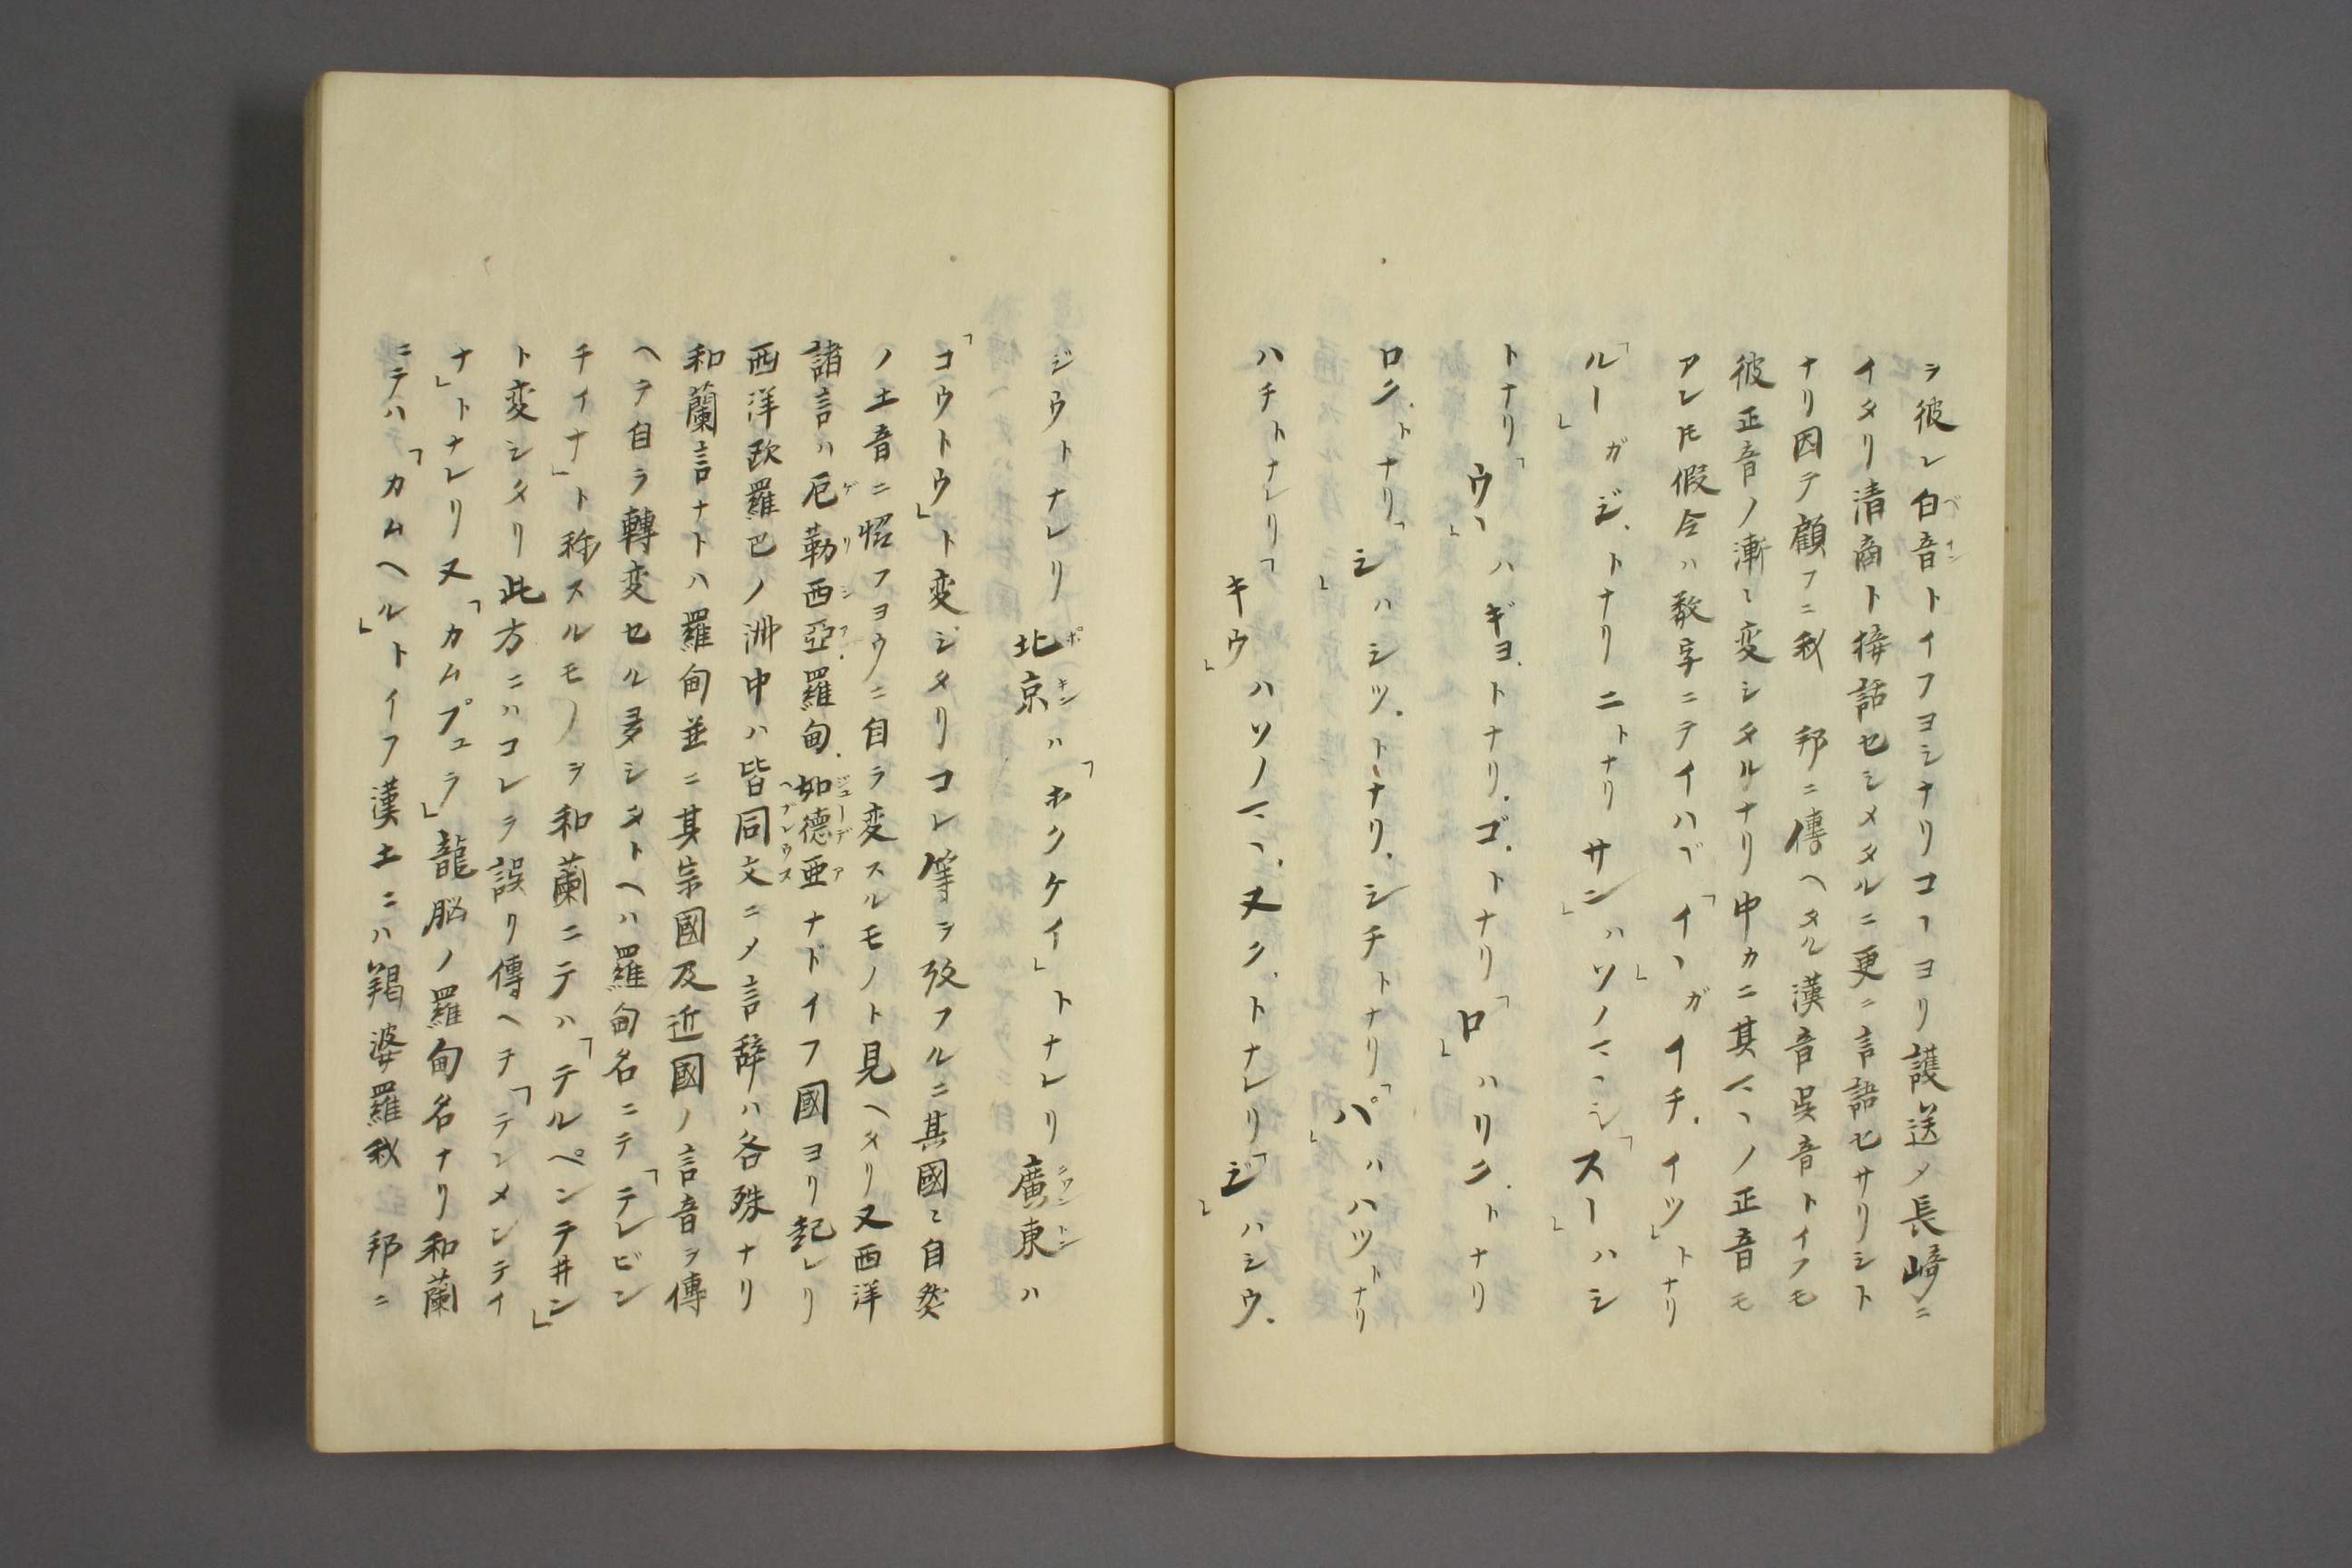 ヲ彼レ白音トイフヨシナリコヽヨリ護送〆長﨑ニ
イタリ清商ト接話セシメタルニ更ニ言語セサリシト
ナリ因テ顧フニ我　邦ニ傳ヘタル漢音呉音トイフモ
彼正音ノ漸〻変シタルナリ中カニ其マヽノ正音モ
アレ𪜈假令ハ数字ニテイハヾ「イヽガイチ.イツ」トナリ
「ルー」ガジ.トナリニトナリ「サン」ハソノマヽシ「スー」ハシ
トナリ「ウヽ」ハギヨ.トナリ.ゴ.トナリ「ロ」ハリク.トナリ
ロク.トナリ「シ」ハシツ.トナリ.シチトナリ「パ」ハハツトナリ
ハチトナレリ「キウ」ハソノマヽ.又ク.トナレリ「ジ」ハシウ.
ジウトナレリ北京ハ「ホクケイ」トナレリ廣東ハ
「コウトウ」ト変ジタリコレ等ヲ攷フルニ其國〻自然
ノ土音ニ㤂フヨウニ自ラ変スルモノト見ヘタリ又西洋
諸言ハ厄勒西亞.羅甸.如德亜ナドイフ國ヨリ起レリ
西洋欧羅巴ノ洲中ハ皆同文ニ〆言辞ハ各殊ナリ
和蘭言ナトハ羅甸並ニ其宗國及近國ノ言音ヲ傳
ヘテ自ラ轉変セル多シタトヘハ羅甸名ニテ「テレビン
チイナ」ト称スルモノヲ和蘭ニテハ「テルペンテ井ン」
ト変シタリ此方ニハコレヲ誤リ傳ヘチ「テンメンテイ
ナ」トナレリ又「カムプュラ」龍脳ノ羅甸名ナリ和蘭
ニテハ「カムヘル」トイフ漢土ニハ羯婆羅我　邦ニ